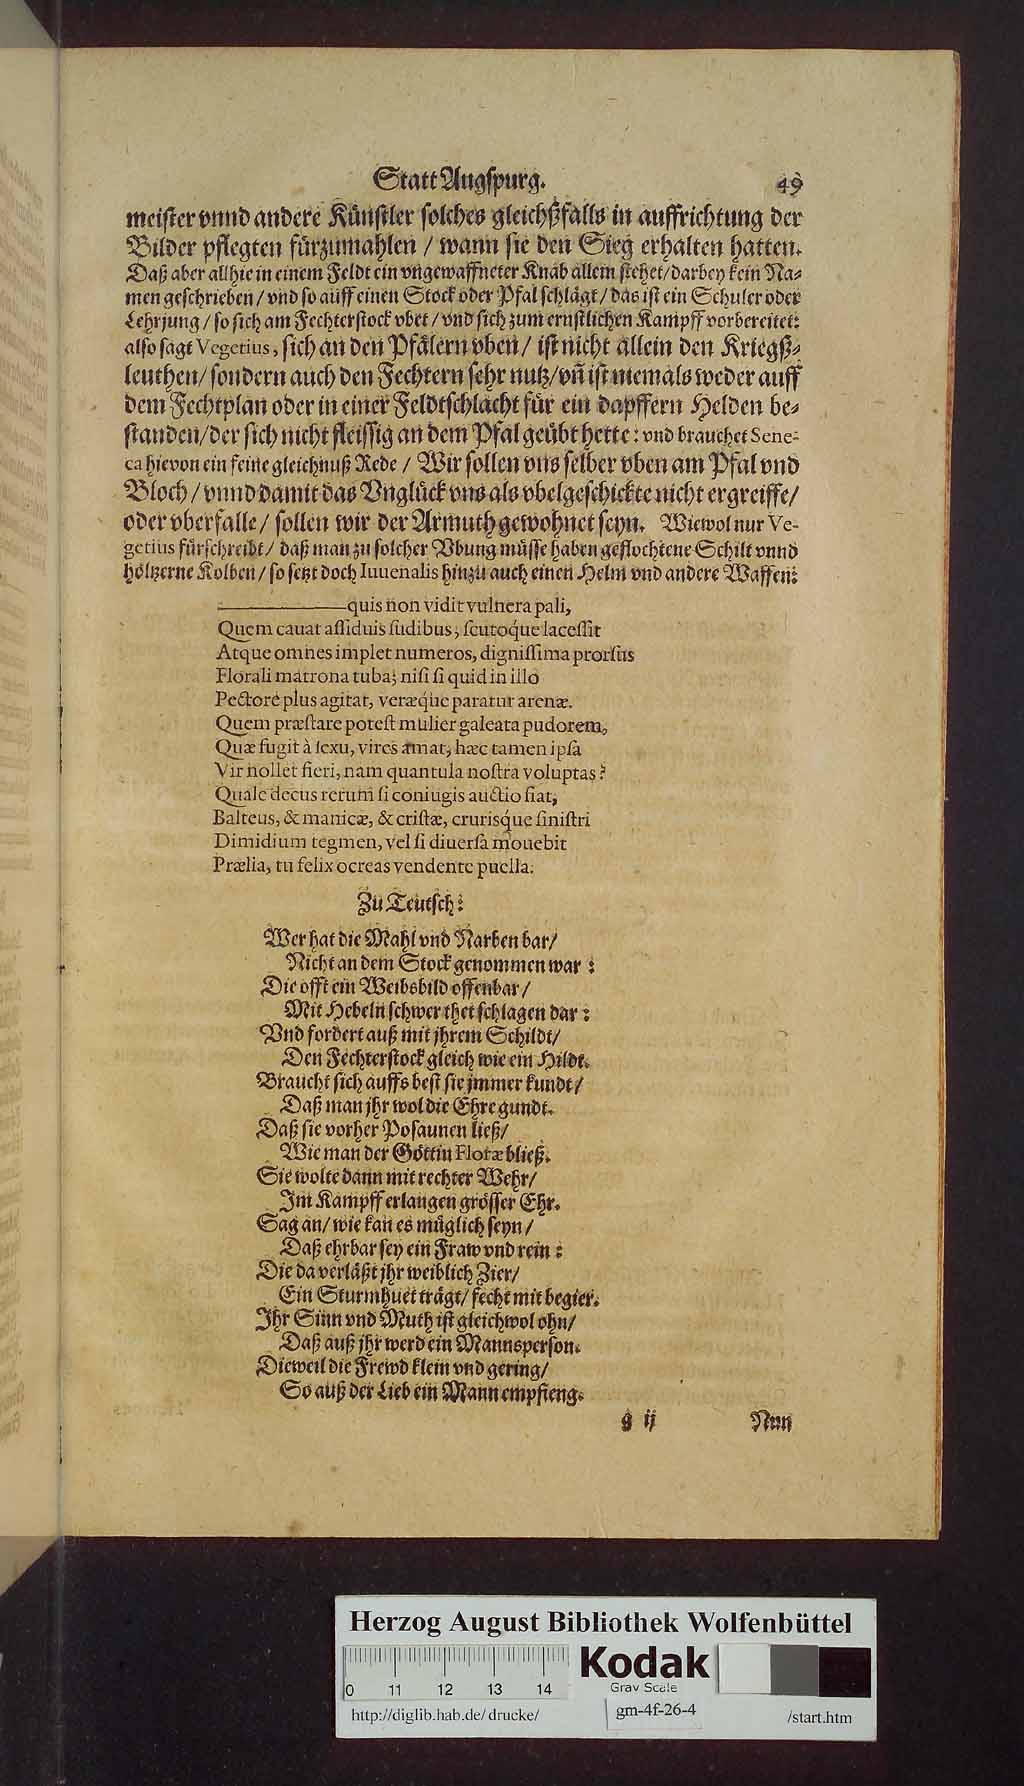 Statt Augspurg. 49
meister vnnd andere Künstler solches gleichßfalls in auffrichtung der
Bilder pflegten fürzumahlen / wann sie den Sieg erhalten hatten.
Daß aber allhie in einem Feldt ein vngewaffneter Knab allein stehet / darbey kein Na-
men geschrieben / vnd so auff einen Stock oder Pfal schlägt / das ist ein Schuler oder
Lehrjung / so sich am Fechterstock vbet / vnd sich zum ernstlichen Kampff vorbereitet:
also sagt Vegetius, sich an den Pfälern vben / ist nicht allein den Kriegß-
leuthen / sondern auch den Fechtern sehr nutz / vn̄ ist niemals weder auff
dem Fechtplan oder in einer Feldtschlacht für ein dapffern Helden be-
standen / der sich nicht fleissig an dem Pfal geübt hette: vnd brauchet Sene-
ca hievon ein feine gleichnuß Rede / Wir sollen vns selber vben am Pfal vnd
Bloch / vnnd damit das Vnglück vns als vbelgeschickte nicht ergreiffe /
oder vberfalle / sollen wir der Armuth gewohnet seyn. Wiewol nur Ve-
getius fürschreibt / daß man zu solcher Vbung müsse haben geflochtene Schilt vnnd
höltzerne Kolben / so setzt doch Iuuenalis hinzu auch einen Helm vnd andere Waffen:
———quis non vidit vulnera pali,
Quem cauat aſſiduis ſudibus, ſcutoq́ue laceſſit
Atque omnes implet numeros, digniſſima prorſus
Florali matrona tuba; niſi ſi quid in illo
Pectore plus agitat, veræq́ue paratur arenæ.
Quem præſtare poteſt mulier galeata pudorem,
Quæ fugit à ſexu, vires amat; hæc tamen ipſa
Vir nollet fieri, nam quantula noſtra voluptas?
Quale decus rerum ſi coniugis auctio fiat,
Balteus, & manicæ, & criſtæ, crurisq́ue ſiniſtri
Dimidium tegmen, vel ſi diuerſa mouebit
Prælia, tu felix ocreas vendente puella.
Zu Teutsch:
Wer hat die Mahl vnd Narben bar /
Nicht an dem Stock genommen war:
Die offt ein Weibsbild offenbar /
Mit Hebeln schwer thet schlagen dar:
Vnd fordert auß mit jhrem Schildt /
Den Fechterstock gleich wie ein Hildt.
Braucht sich auffs best sie jmmer kundt /
Daß man jhr wol die Ehre gundt.
Daß sie vorher Posaunen ließ /
Wie man der Göttin Floræ bließ.
Sie wolte dann mit rechter Wehr /
Im Kampff erlangen grösser Ehr.
Sag an / wie kan es müglich seyn /
Daß ehrbar sey ein Fraw vnd rein:
Die da verläßt jhr weiblich Zier /
Ein Sturmhuet trägt / fecht mit begier.
Ihr Sinn vnd Muth ist gleichwol ohn /
Daß auß jhr werd ein Mannsperson.
Dieweil die Frewd klein vnd gering /
So auß der Lieb ein Mann empfieng.
g ij Nun
Herzog August Bibliothek Wolfenbüttel
0 11 12 13 14
Kodak
Gray Scale
http://diglib.hab.de/drucke/ gm-4f-26-4 /start.htm